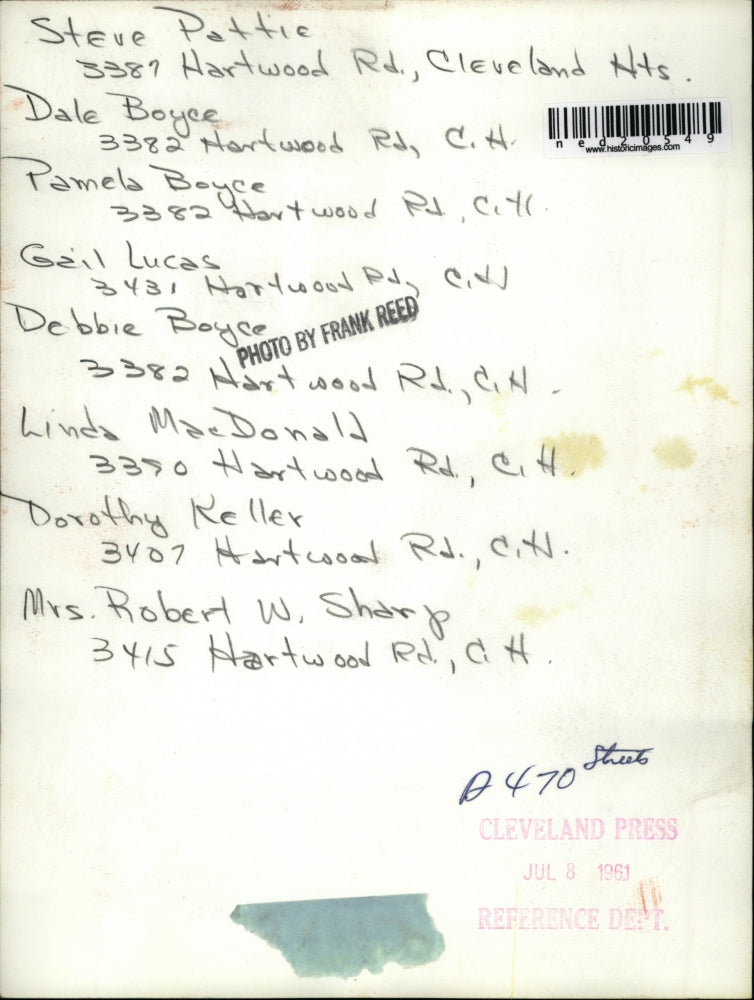 Steve Pattie
3387 Hartwood Rd., Cleveland Hts.
Dale Boyce
3382 Hartwood Rd, C.H.
ned20549
www.historicimages.com
Pamela Boyce
3382 Hartwood Rd, C.H.
Gail Lucas
3431 Hartwood Rd, C.H
Debbie Boyce
PHOTO BY FRANK REED
3382 Hartwood Rd., C.H.
Linda MacDonald
3390 Hartwood Rd., C.H.
Dorothy Keller
3407 Hartwood Rd., C.H.
Mrs. Robert W. Sharp
3415 Hartwood Rd., C.H.
A 470 Streets
CLEVELAND PRESS
JUL 8 1961
REFERENCE DEPT.